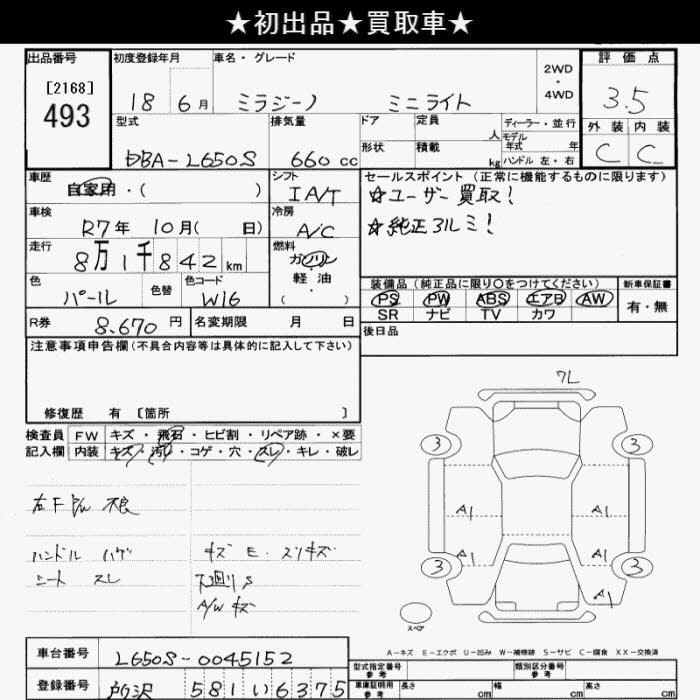 ★初出品★買取車★
出品番号
[2168]
493
初度登録年月
18 6 月
車名・グレード
ミラジーノ ミニライト
2WD
・
4WD
評価点
3.5
外装 内装
C C
型式
DBA-L650S
排気量
660 cc
ドア
形状
定員
人
積載
kg
ディーラー・並行
モデル
年式 年
ハンドル 左・右
車歴
自家用・( )
シフト
IA/T
セールスポイント (正常に機能するものに限ります)
☆ユーザー買取!
☆純正アルミ!
車検
R7年 10月( 日)
冷房
A/C
走行
8万1千842km
燃料
ガソリン
軽油
( ・ )
色
パール
色替
色コード
W16
装備品 (純正品に限り○をつけてください)
PS PW ABS エアB AW
SR ナビ TV カワ
新車保証書
有・無
R券
8,670 円
名変期限 月 日
後日品
注意事項申告欄(不具合内容等は具体的に記入して下さい)
修復歴 有 [箇所 ]
検査員
記入欄
FW キズ・飛石・ヒビ割・リペア跡・×要
内装 キズ・汚れ・コゲ・穴・スレ・キレ・破レ
不良
ハンドル ハゲ
シート スレ
キズ E・スリキズ
下廻りS
A/W キズ
7L
3 3
A1 A1
A1 A1
3 3
A1
スペア
A-キズ E-エクボ U-凹み W-補修跡 S-サビ C-腐食 XX-交換済
車台番号
L650S-0045152
登録番号
所沢 581 い 6375
型式指定番号
参考
類別区分番号
参考
車庫証明用
参考
長さ cm 幅 cm 高さ cm